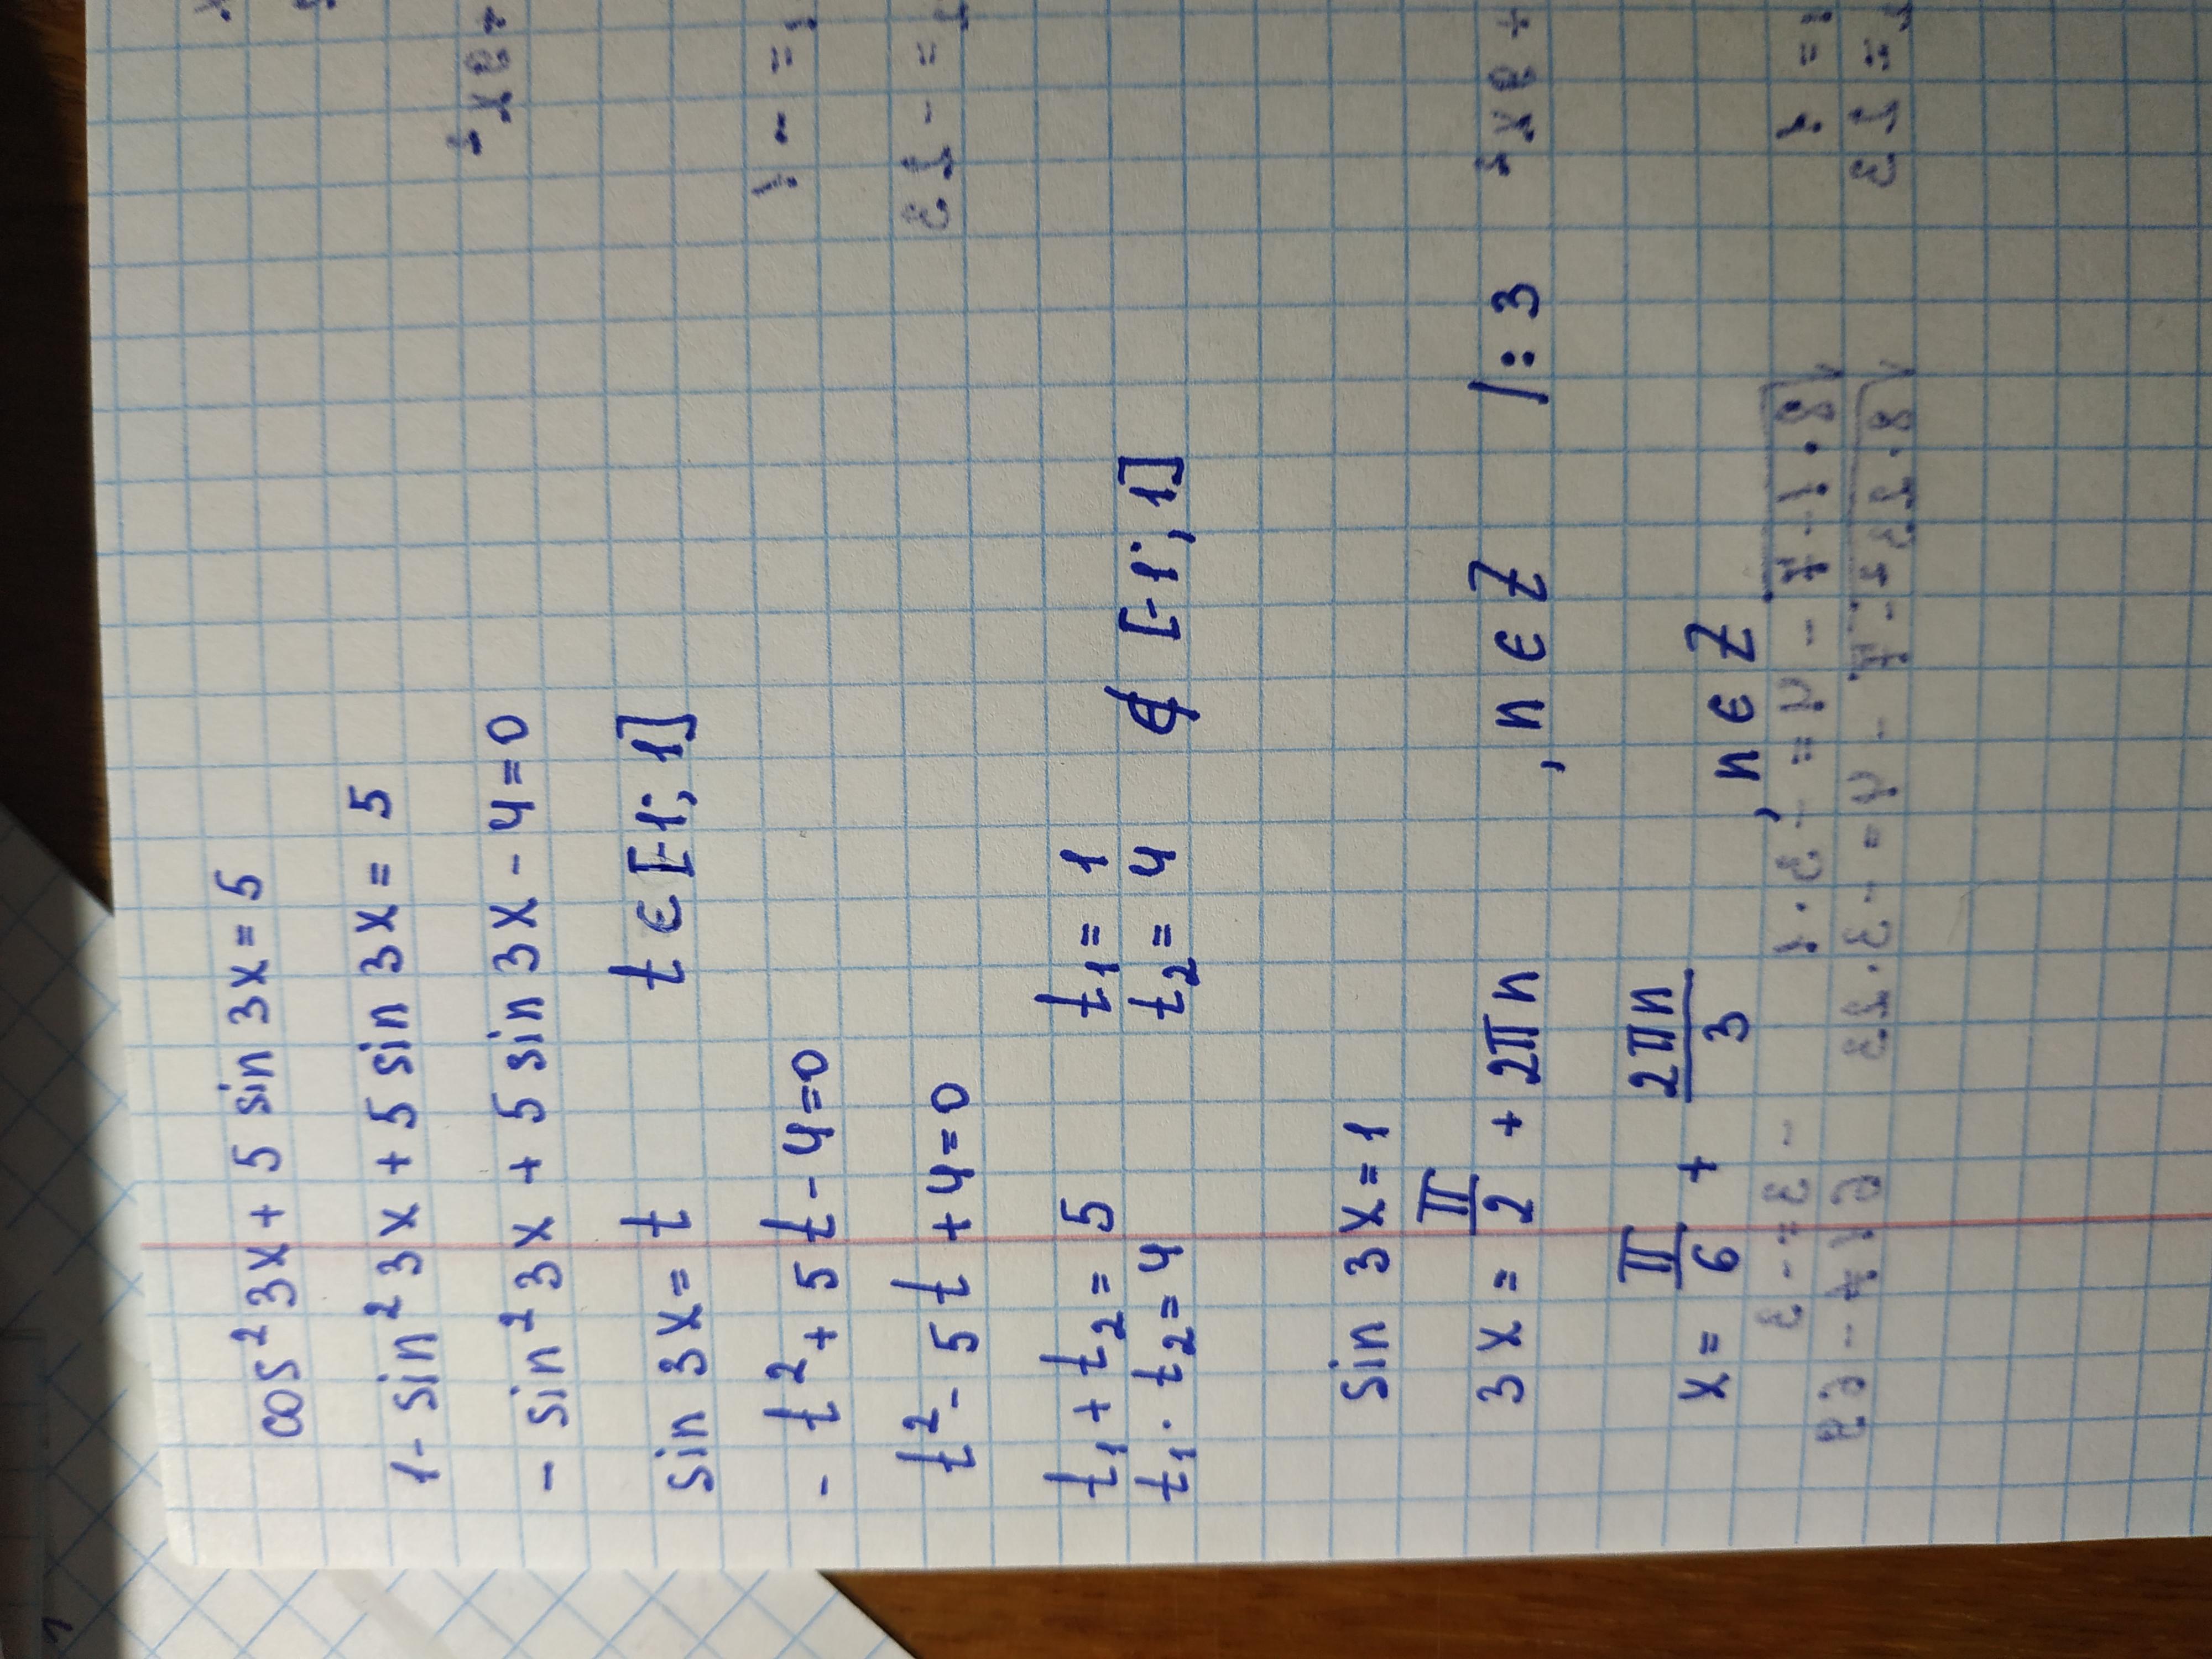 cos² 3x + 5 sin 3x = 5
1 - sin² 3x + 5 sin 3x = 5
- sin² 3x + 5 sin 3x - 4 = 0
sin 3x = t t ∈ [-1; 1]
- t² + 5t - 4 = 0
t² - 5t + 4 = 0
t₁ + t₂ = 5 t₁ = 1
t₁ · t₂ = 4 t₂ = 4 ∉ [-1; 1]
sin 3x = 1
3x = π/2 + 2πn , n ∈ Z /: 3
x = π/6 + 2πn/3 , n ∈ Z